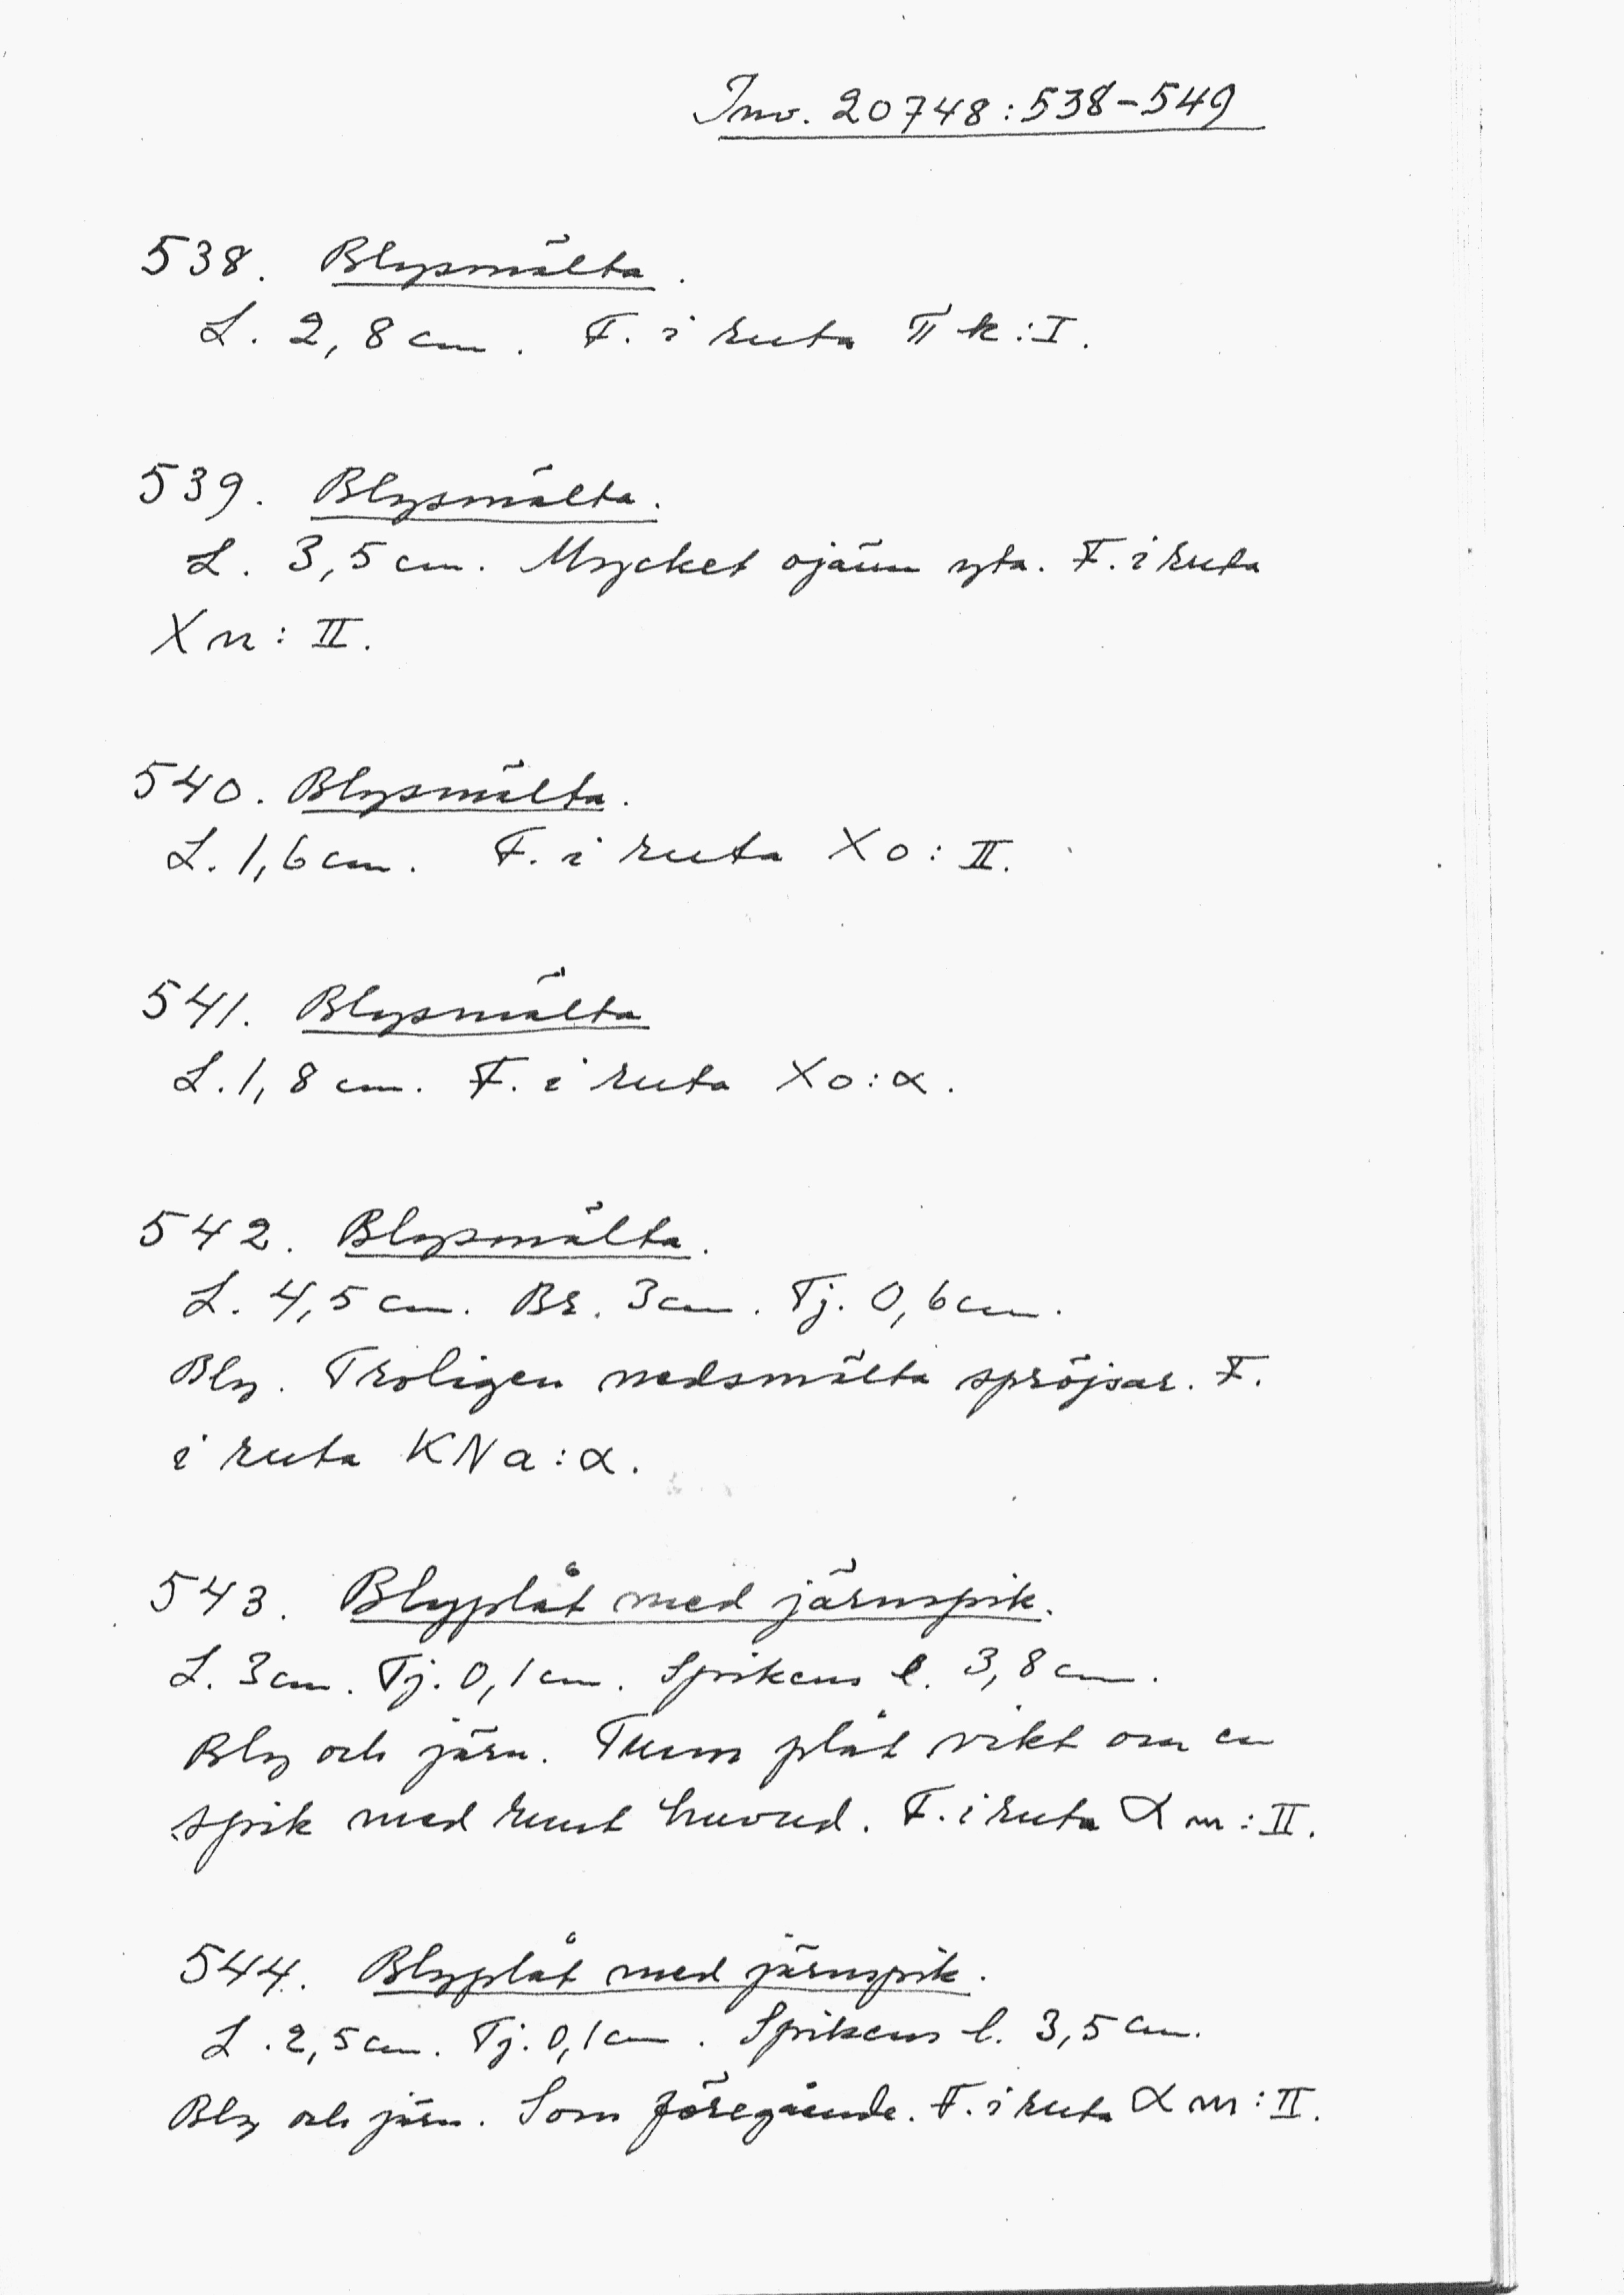 Inv. 20748:538-549
538. Blysmälta.
L. 2,8 cm. F. i ruta π k:I.
539. Blysmälta.
L. 3,5 cm. Mycket ojämn yta. F. i ruta
Xn: II.
540. Blysmälta.
L. 1,6 cm. F. i ruta Xo: II.
541. Blysmälta
L. 1,8 cm. F. i ruta Xo:α.
542. Blysmälta.
L. 4,5 cm. Br. 3 cm. Tj. 0,6 cm.
Bly. Troligen nedsmälta spröjsar. F.
i ruta KNa:α.
543. Blyplåt med järnspik.
L. 3 cm. Tj. 0,1 cm. Spikens l. 3,8 cm.
Bly och järn. Tunn plåt vikt om en
spik med runt huvud. F. i ruta αm: II.
544. Blyplåt med järnspik.
L. 2,5 cm. Tj. 0,1 cm. Spikens l. 3,5 cm.
Bly och järn. Som föregående. F. i ruta αm: II.